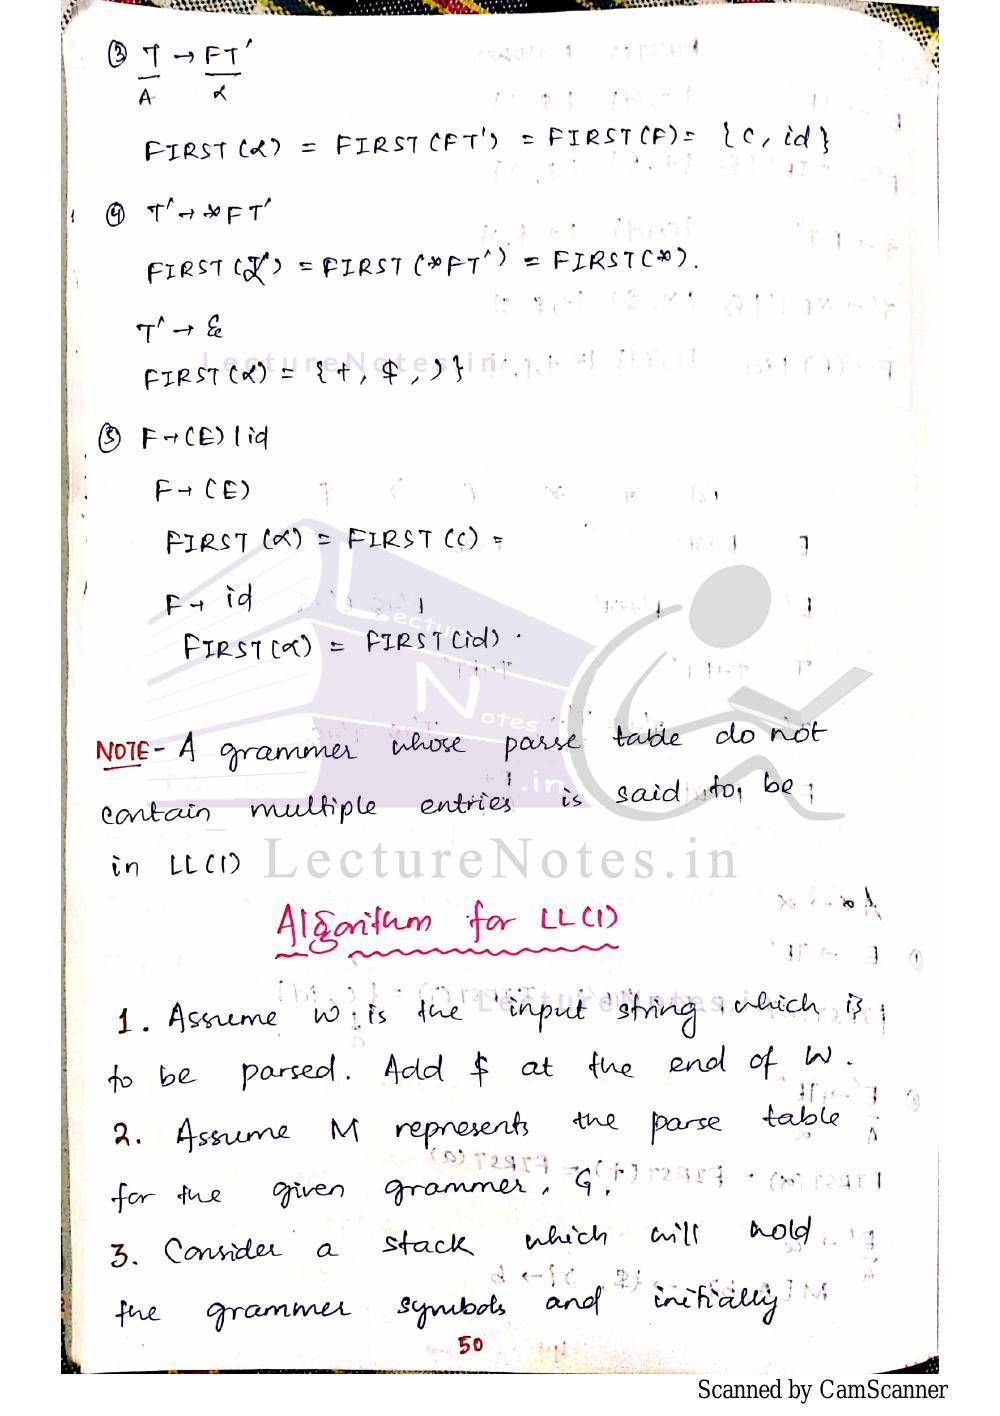 ③ T → FT′
A α
FIRST (α) = FIRST (FT') = FIRST (F) = { (, id }
④ T′ → *FT′
FIRST (α) = FIRST (*FT′) = FIRST (*).
T′ → ε
FIRST (α) = { +, $, ) }
⑤ F → (E) | id
F → (E)
FIRST (α) = FIRST (() =
F → id
FIRST (α) = FIRST (id) .
NOTE - A grammer whose parse table do not
contain multiple entries is said to be
in LL(1)
LectureNotes.in
Algorithm for LL(1)
1. Assume w is the input string which is
to be parsed. Add $ at the end of W.
2. Assume M represents the parse table
for the given grammer, G.
3. Consider a stack which will hold
the grammer symbols and initially
50
Scanned by CamScanner